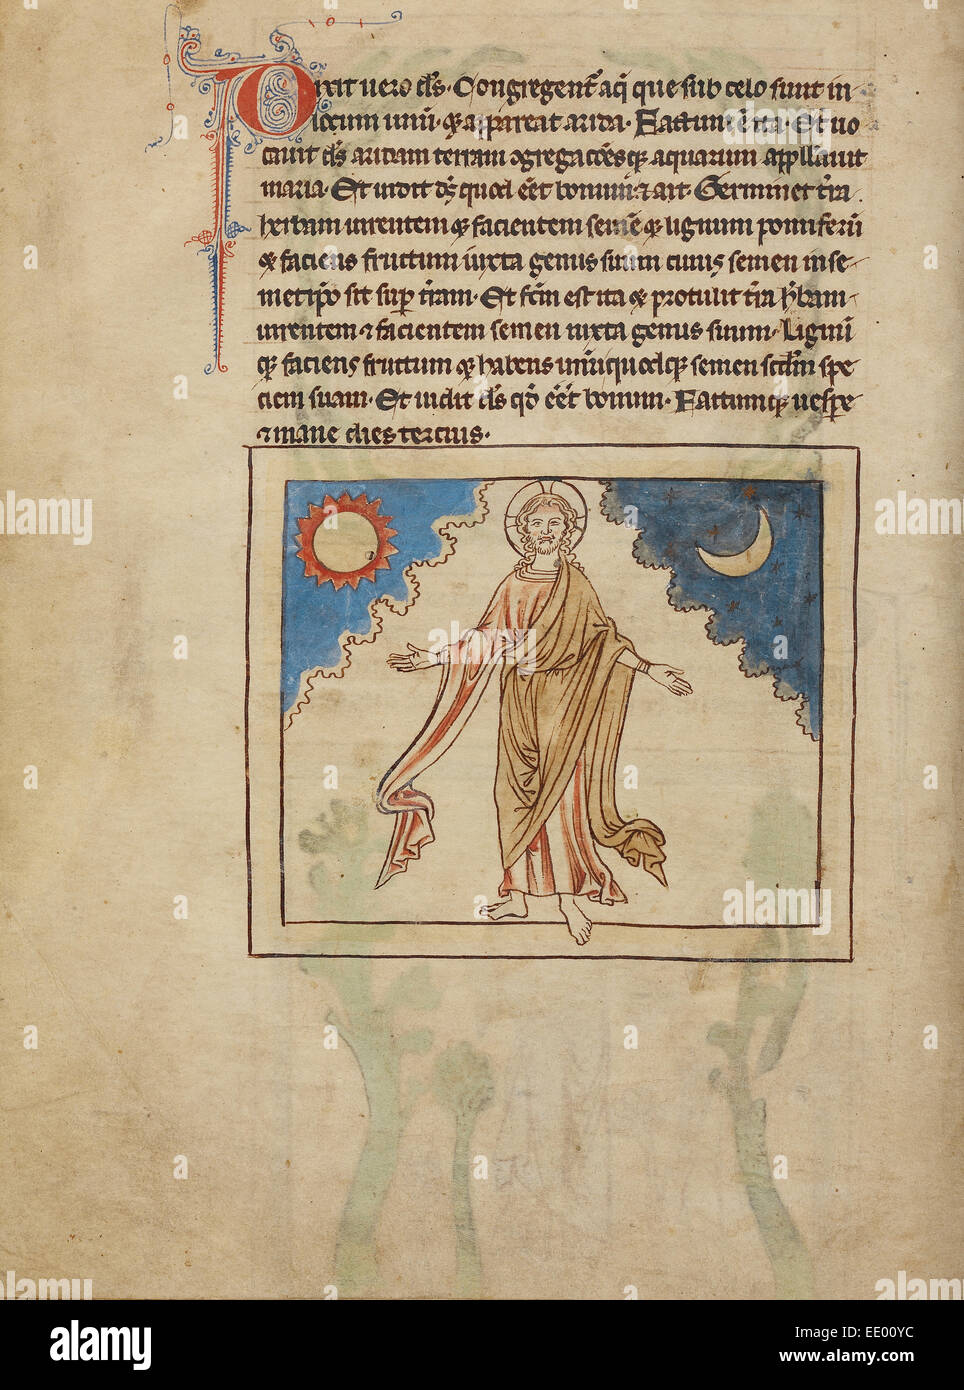 Dixit uero ds̄. Congregent᷑ aq̄ que sub celo sunt in
locum unū. ⁊ appareat arida. Factum ē ita. Et uo
cauit ds̄ aridam terram ꝯgregac̄ōesqꝫ aquarum appllauit
maria. Et uidit ds̄ quod eēt bonum ⁊ ait. Germinet t̄ra
herbam uirentem ⁊ facientem semē ⁊ lignum pomiferū
⁊ faciens fructum iuxta genus suum cuius semen in se
metip̄o sit sup̄ t̄ram. Et fc̄m est ita ⁊ protulit t̄ra h̄bam
uirentem ⁊ facientem semen iuxta genus suum. Lignū
qꝫ faciens fructum ⁊ habens unūquodqꝫ semen scd̄m spe
ciem suam. Et uidit ds̄ qd̄ eēt bonum. Factumqꝫ uesp̄e
⁊ mane dies tercius.
alamy
alamy stock photo
EE00YC
www.alamy.com